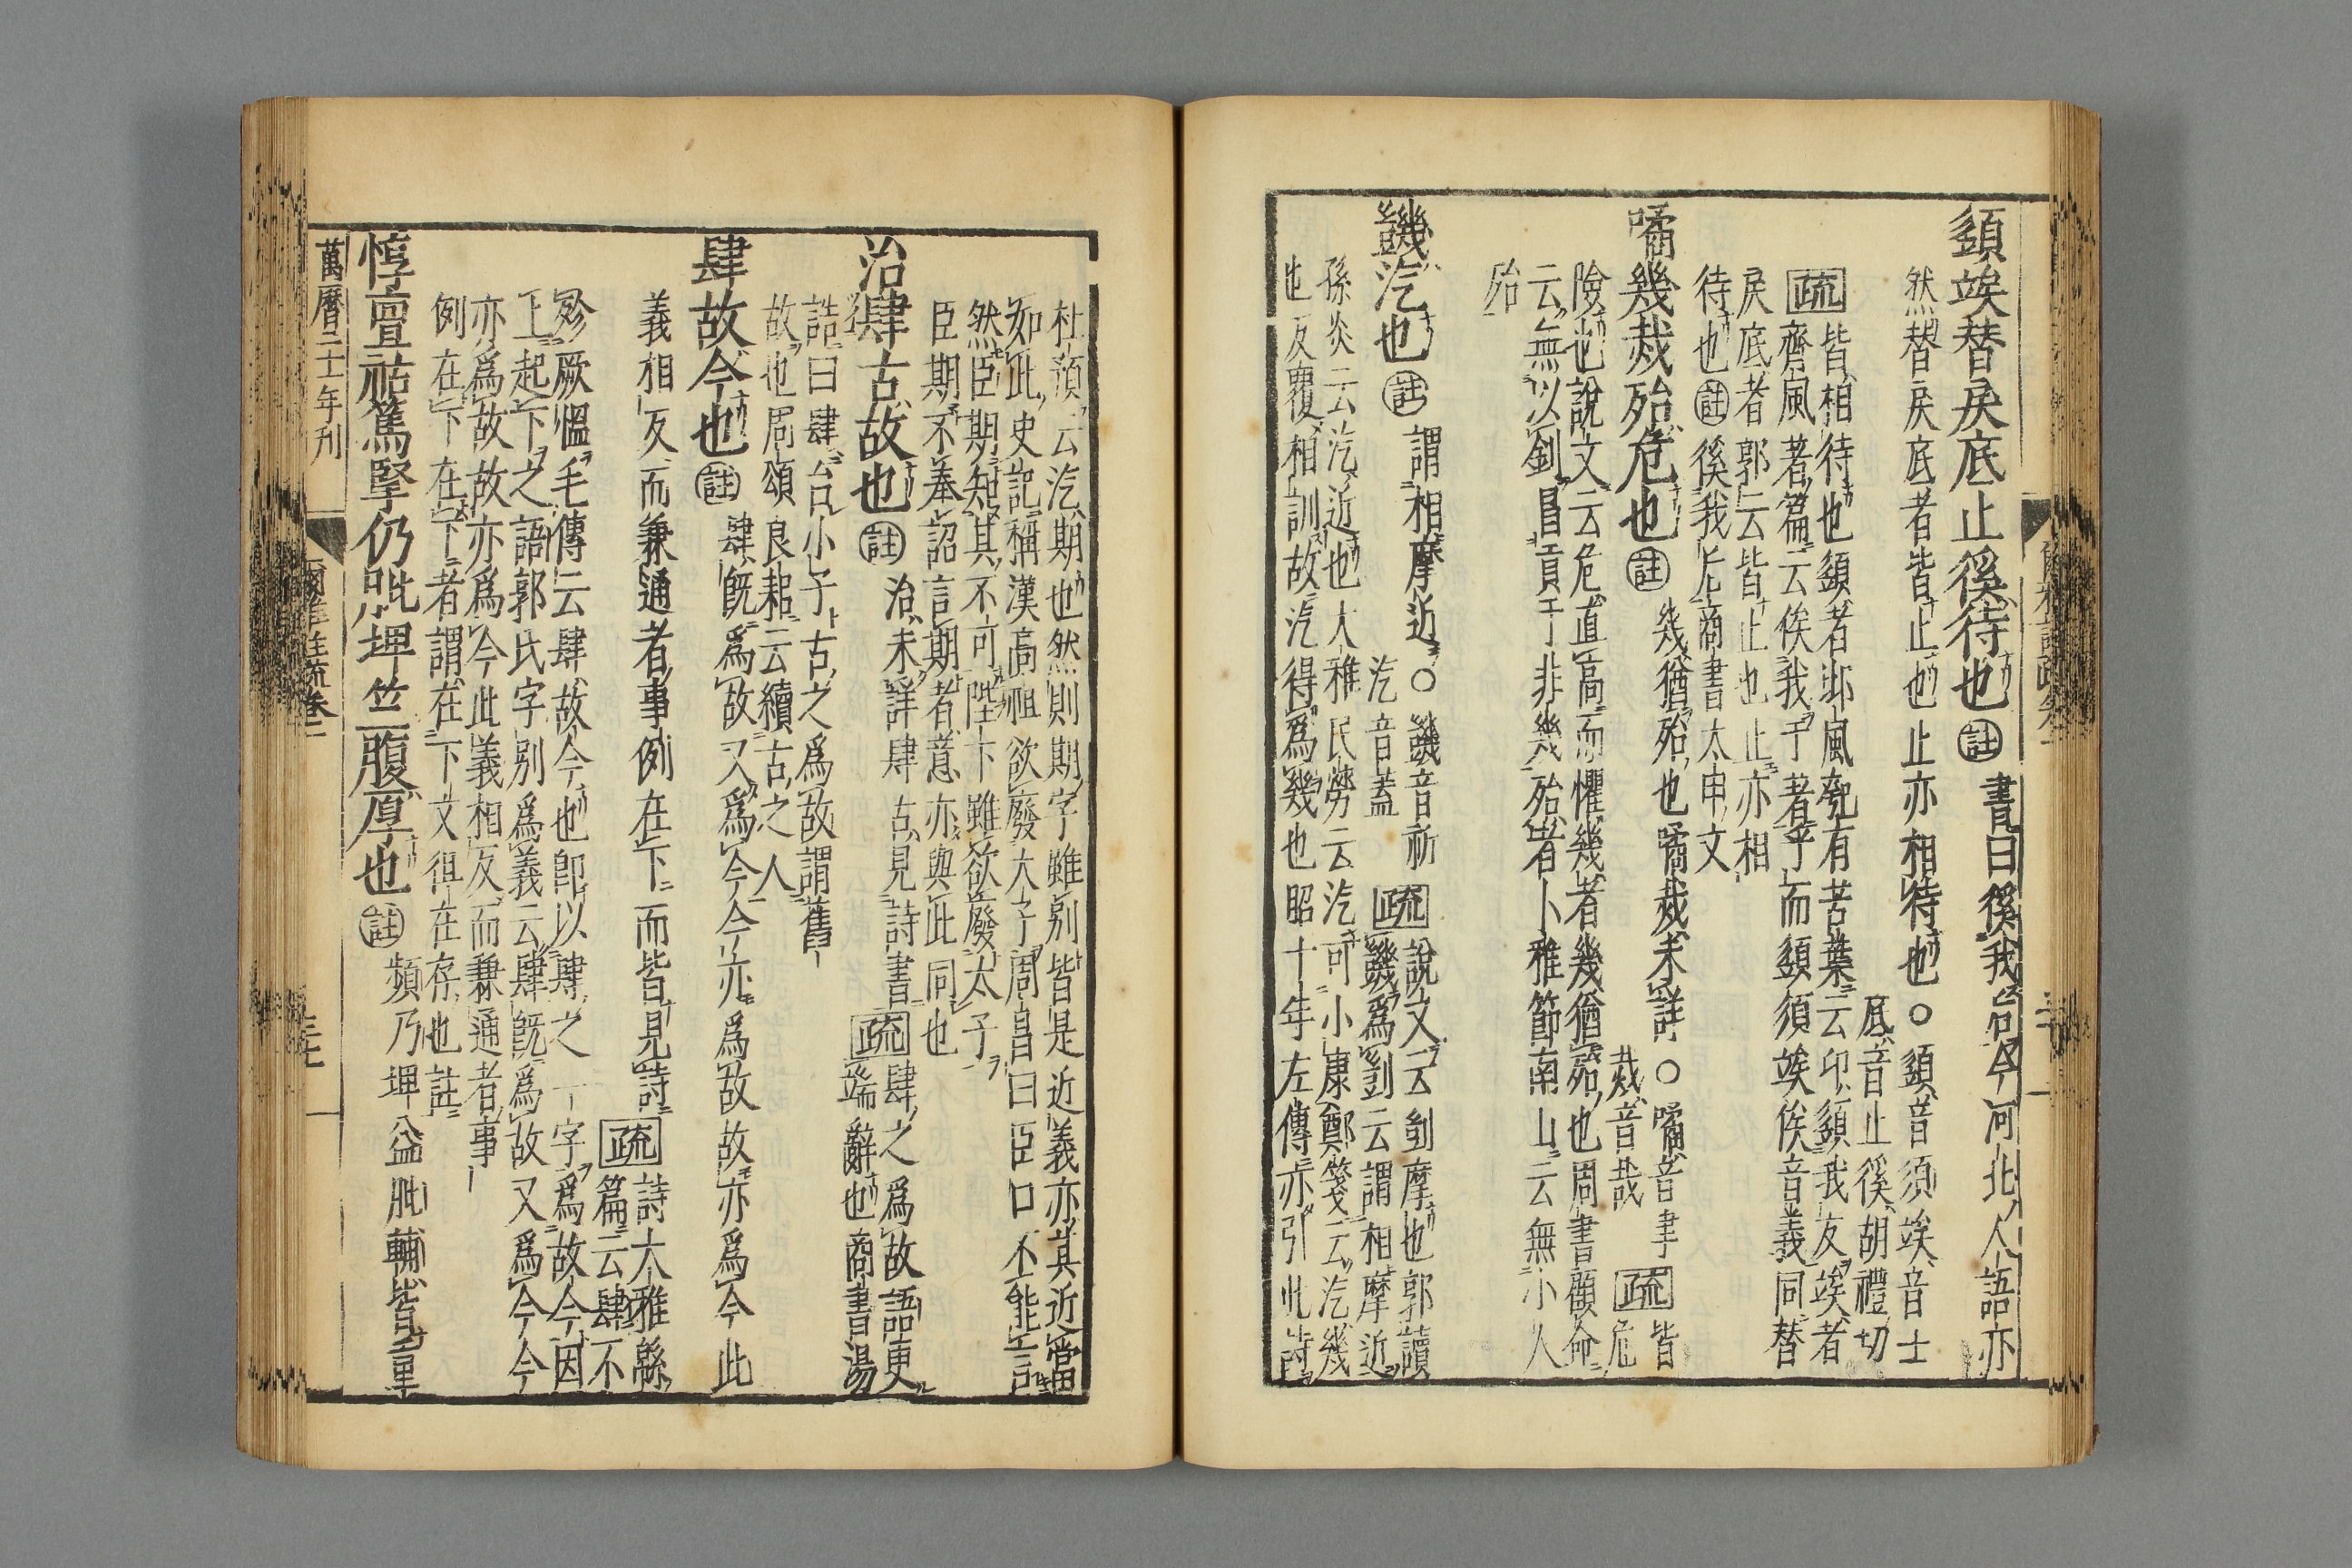 𩓣竢替戾底止徯待也註書曰徯我后今河北人語亦
然替戾底者皆止也止亦相待也○𩓣音須竢音士
底音止徯胡禮切
疏皆相待也𩓣者邶風匏有苦葉云卬𩓣我友竢者
齊風著篇云俟我于著乎而𩓣須竢俟音義同替
戾底者郭云皆止也止亦相
待也註徯我后商書太甲文
噊幾烖殆危也註幾猶殆也噊烖未詳○噊音聿
烖音哉
疏皆危
險也說文云危直高而懼幾者幾猶殆也周書顧命
云無以釗冒貢于非幾殆者小雅節南山云無小人
殆
𧰙汔也註謂相摩近○𧰙音祈
汔音蓋
疏說文云刉摩也郭讀
𧰙爲刉云謂相摩近
孫炎云汔近也大雅民勞云汔可小康鄭箋云汔幾
也反覆相訓故汔得爲幾也昭十年左傳亦引此詩
杜預云汔期也然則期字雖別皆是近義亦其近當
如此史記稱漢高祖欲廢大子周昌曰臣口不能言
然臣期知其不可陛下雖欲廢太子
臣期不奉詔言期者意亦與此同也
治肆古故也註治未詳肆古見詩書疏肆之爲故語更
端辭也商書湯
誥曰肆台小子古之爲故謂舊
故也周頌良耜云續古之人
肆故今也註肆既爲故又爲今今亦爲故故亦爲今此
義相反而兼通者事例在下而皆見詩疏詩大雅緜
篇云肆不
殄厥慍毛傳云肆故今也即以肆之一字爲故今因
上起下之語郭氏字別爲義云肆既爲故又爲今今
亦爲故故亦爲今此義相反而兼通者事
例在下在下者謂在下文徂在存也註
惇亶祜篤掔仍肶埤竺腹厚也註頻乃埤益肶輔皆重
萬曆二十一年刊
爾雅註疏卷二